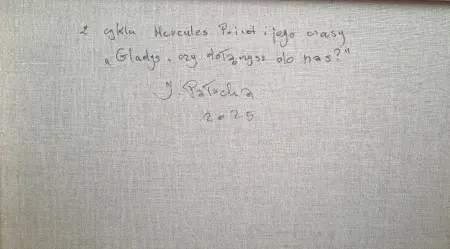 z cyklu Hercules Poirot i jego czasy
"Gladys, czy dołączysz do nas?"
J. Pałucha
2025